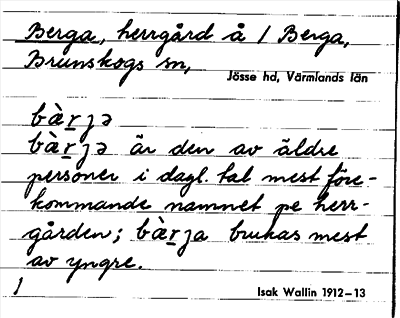 Berga, herrgård å 1 Berga,
Brunskogs sn,
Jösse hd, Värmlands län
bàr̲ȷə
bàr̲ȷə är den av äldre
personer i dagl. tal mest före-
kommande namnet pe herr-
gården; bàr̲ȷa brukas mest
av yngre.
1
Isak Wallin 1912–13